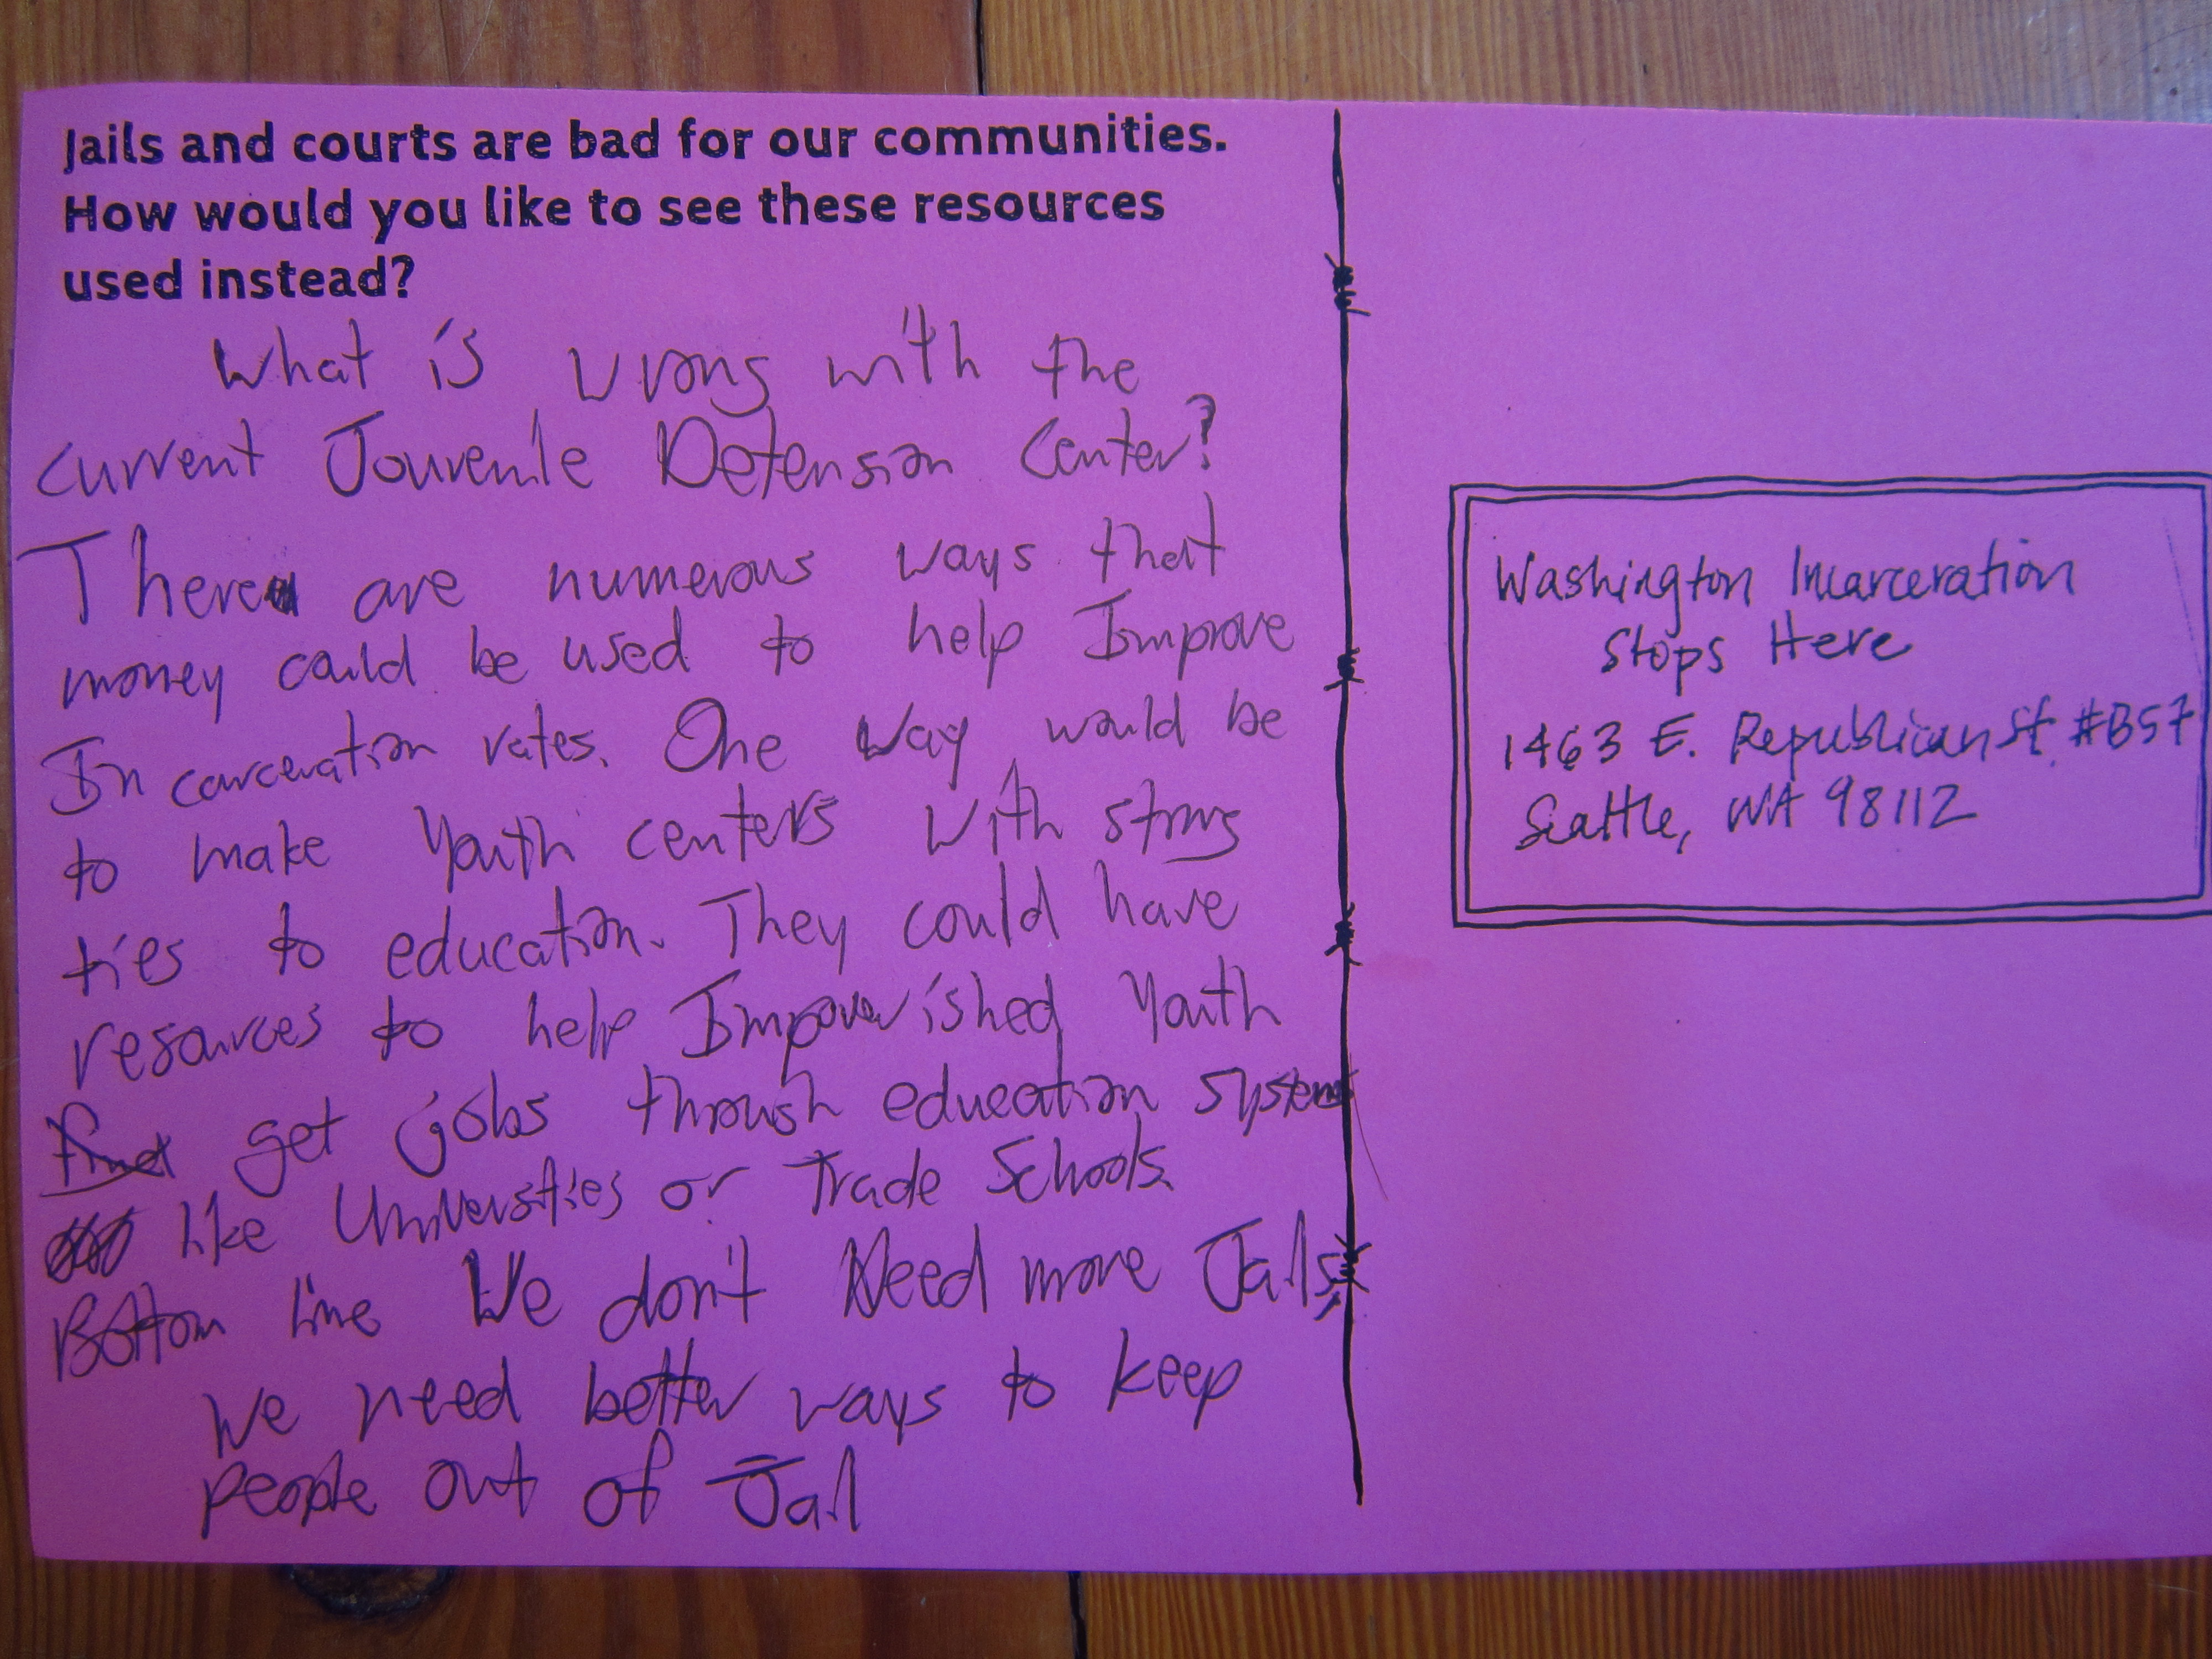 Jails and courts are bad for our communities.
How would you like to see these resources
used instead?
What is wrong with the
current Jouvenile Detension Center?
There are numerous ways that
money could be used to help Improve
In carceration rates. One way would be
to make Youth centers with strong
ties to education. They could have
resources to help Impoverished Youth
find get jobs through education systems
like Universities or Trade Schools.
Bottom line We don't Need more Jails,
We need better ways to keep
people out of Jail
Washington Incarceration
Stops Here
1463 E. Republican St. #B57
Seattle, WA 98112